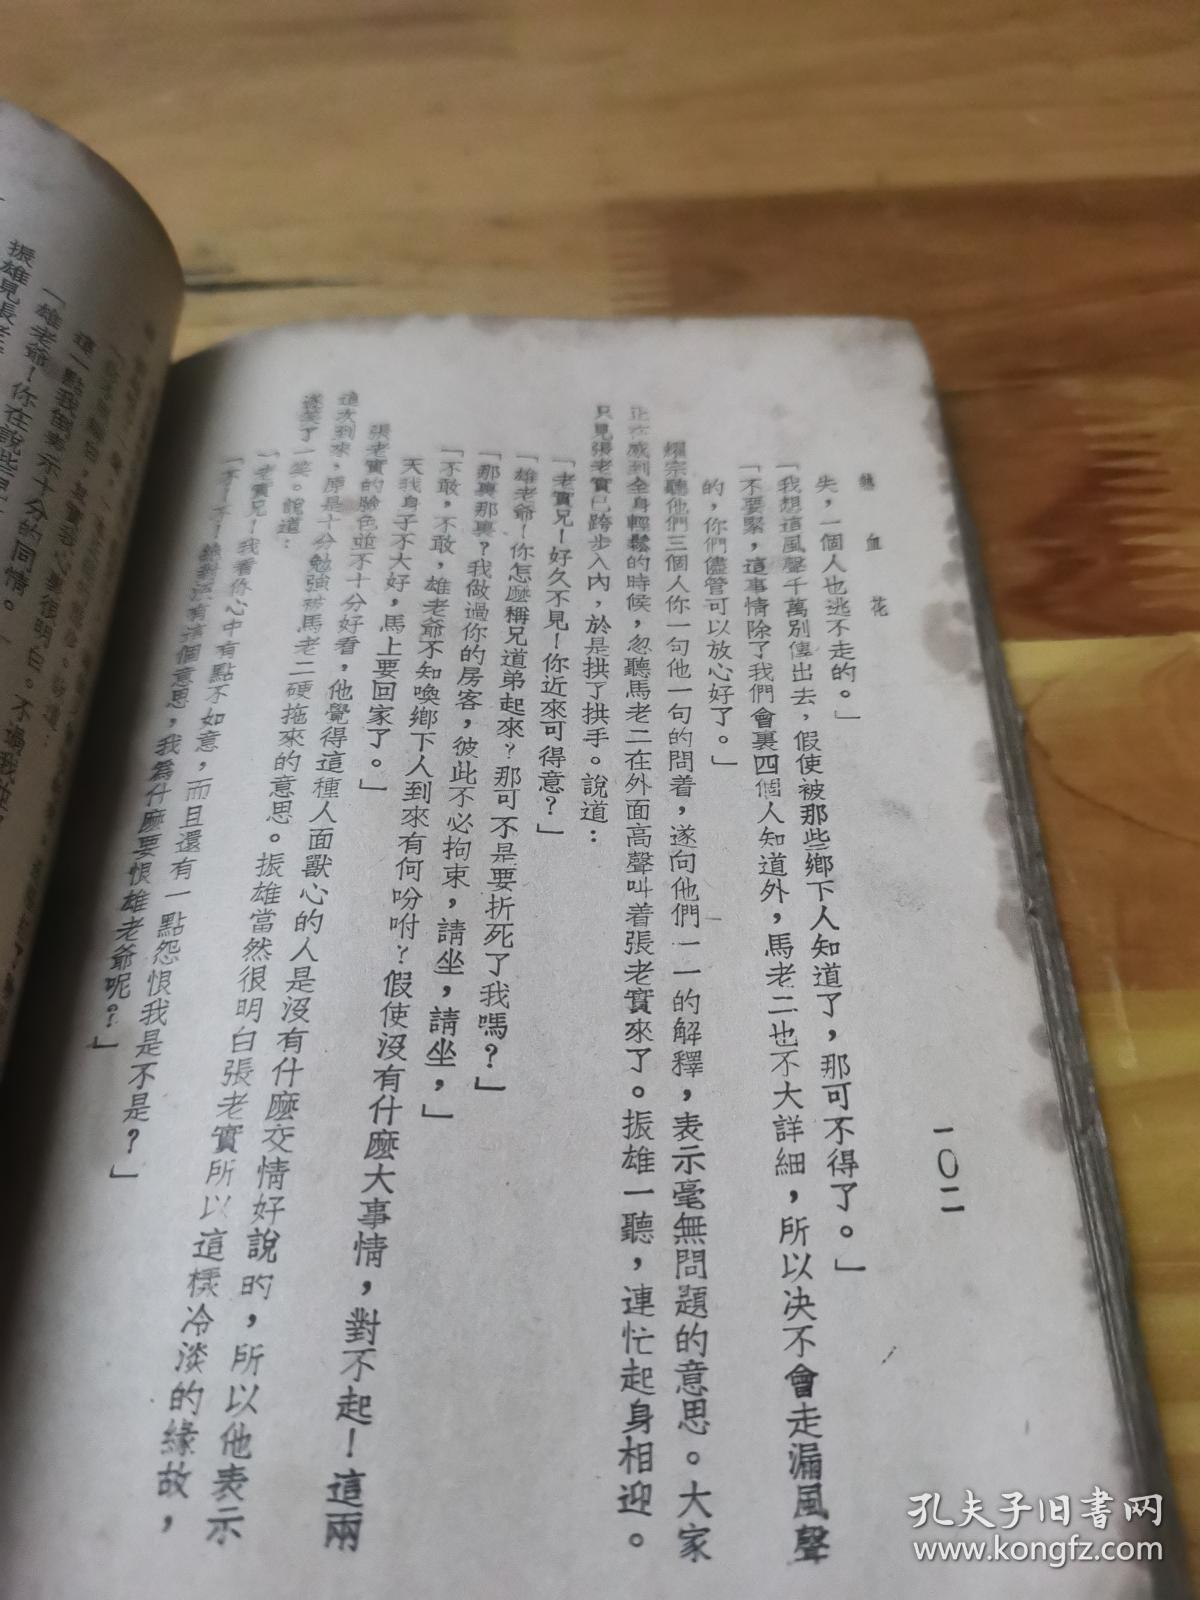 熱血花
一〇二
失，一個人也逃不走的。」
「我想這風聲千萬別傳出去，假使被那些鄉下人知道了，那可不得了。」
「不要緊，這事情除了我們會裏四個人知道外，馬老二也不大詳細，所以决不會走漏風聲
的，你們儘管可以放心好了。」
耀宗聽他們三個人你一句他一句的問着，遂向他們一一的解釋，表示毫無問題的意思。大家
正在感到全身輕鬆的時候，忽聽馬老二在外面高聲叫着張老實來了。振雄一聽，連忙起身相迎。
只見張老實已跨步入內，於是拱了拱手。說道：
「老實兄！好久不見！你近來可得意？」
「雄老爺！你怎麼稱兄道弟起來？那可不是要折死了我嗎？」
「那裏那裏？我做過你的房客，彼此不必拘束，請坐，請坐，」
「不敢，不敢，雄老爺不知喚鄉下人到來有何吩咐？假使沒有什麼大事情，對不起！這兩
天我身子不大好，馬上要回家了。」
張老實的臉色並不十分好看，他覺得這種人面獸心的人是沒有什麼交情好說的，所以他表示
這次到來，原是十分勉強被馬老二硬拖來的意思。振雄當然很明白張老實所以這樣冷淡的緣故，
遂笑了一笑。說道：
「老實兄！我看你心中有點不如意，而且還有一點怨恨我是不是？」
「不！不！絕對沒有這個意思，我爲什麼要恨雄老爺呢？」
這一點我倒表示十分的同情。
「雄老爺！你在說些
振雄見張老
孔夫子旧书网
www.kongfz.com